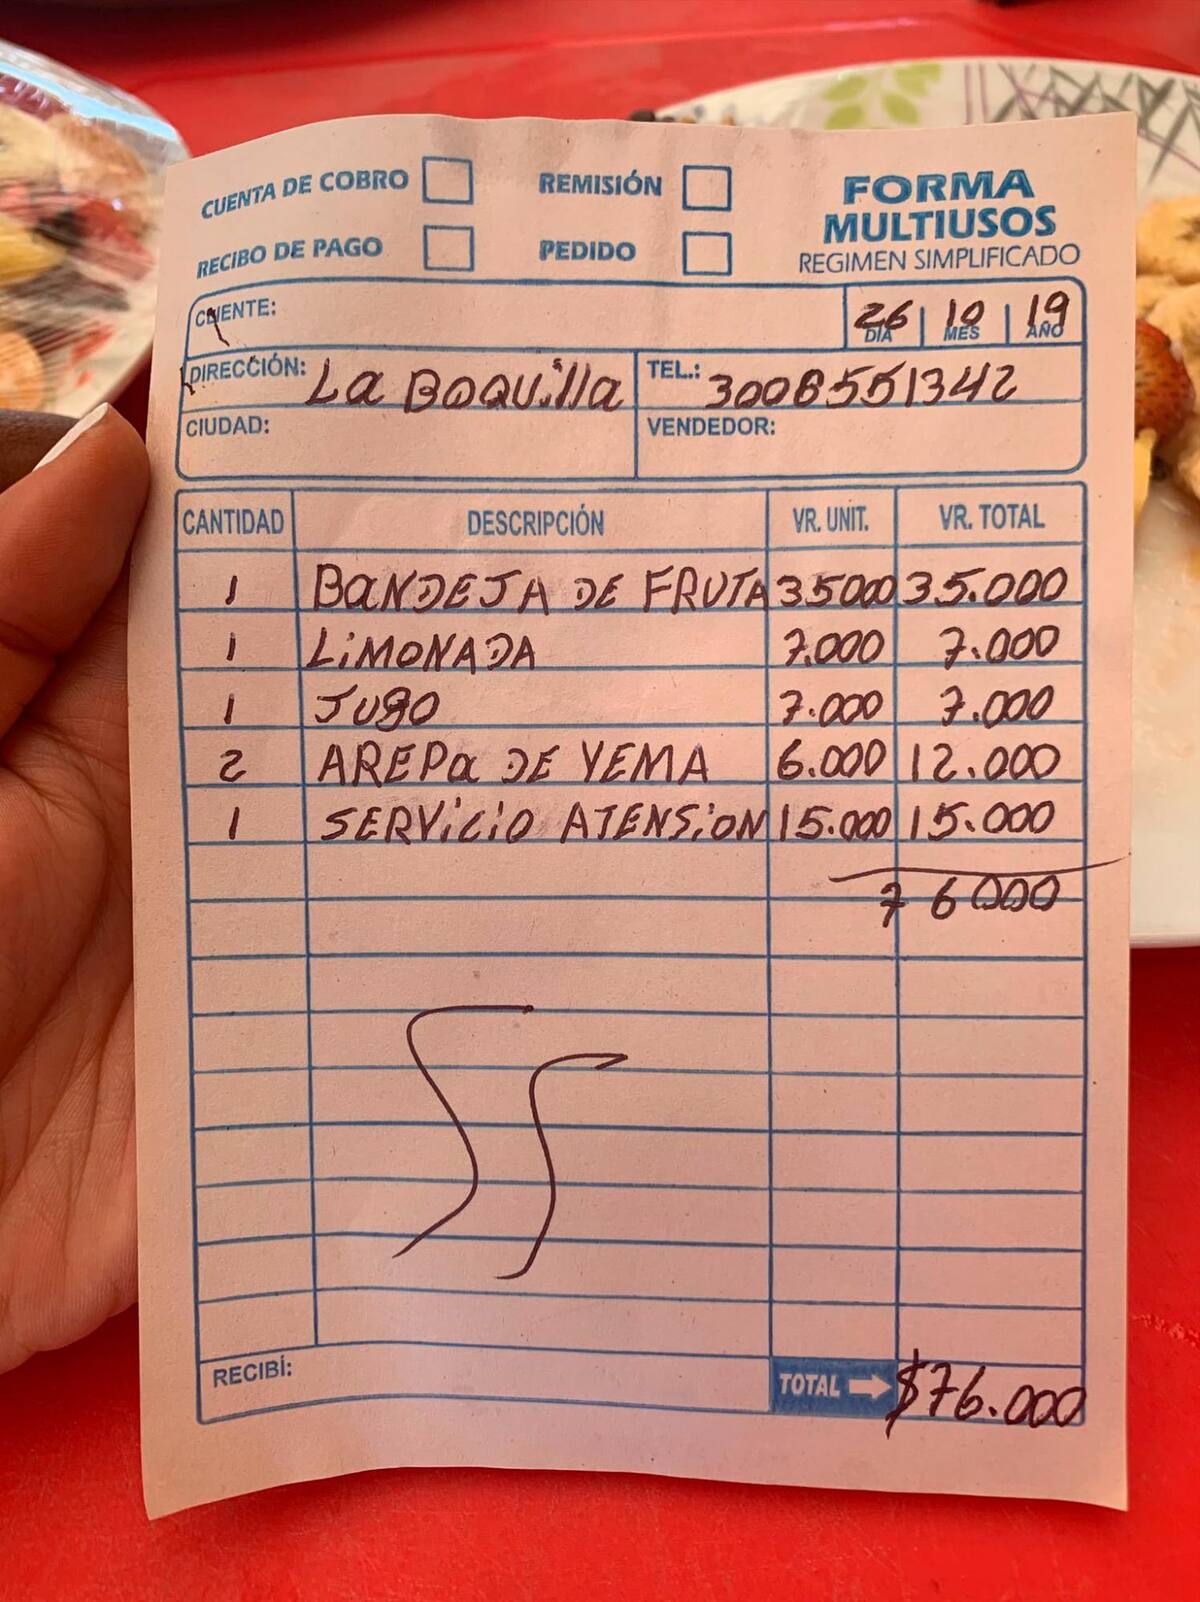 CUENTA DE COBRO REMISIÓN FORMA
MULTIUSOS
RECIBO DE PAGO PEDIDO REGIMEN SIMPLIFICADO
CLIENTE: 26 10 19
DIA MES AÑO
DIRECCIÓN: La BOQUilla TEL.: 3008551342
CIUDAD: VENDEDOR:
CANTIDAD DESCRIPCIÓN VR. UNIT. VR. TOTAL
1 BaNDEJA DE FRUTA 35000 35.000
1 LiMONADA 7.000 7.000
1 Jugo 7.000 7.000
2 AREPa DE YEMA 6.000 12.000
1 SERViCiO ATENSiON 15.000 15.000
76000
RECIBÍ: TOTAL $76.000